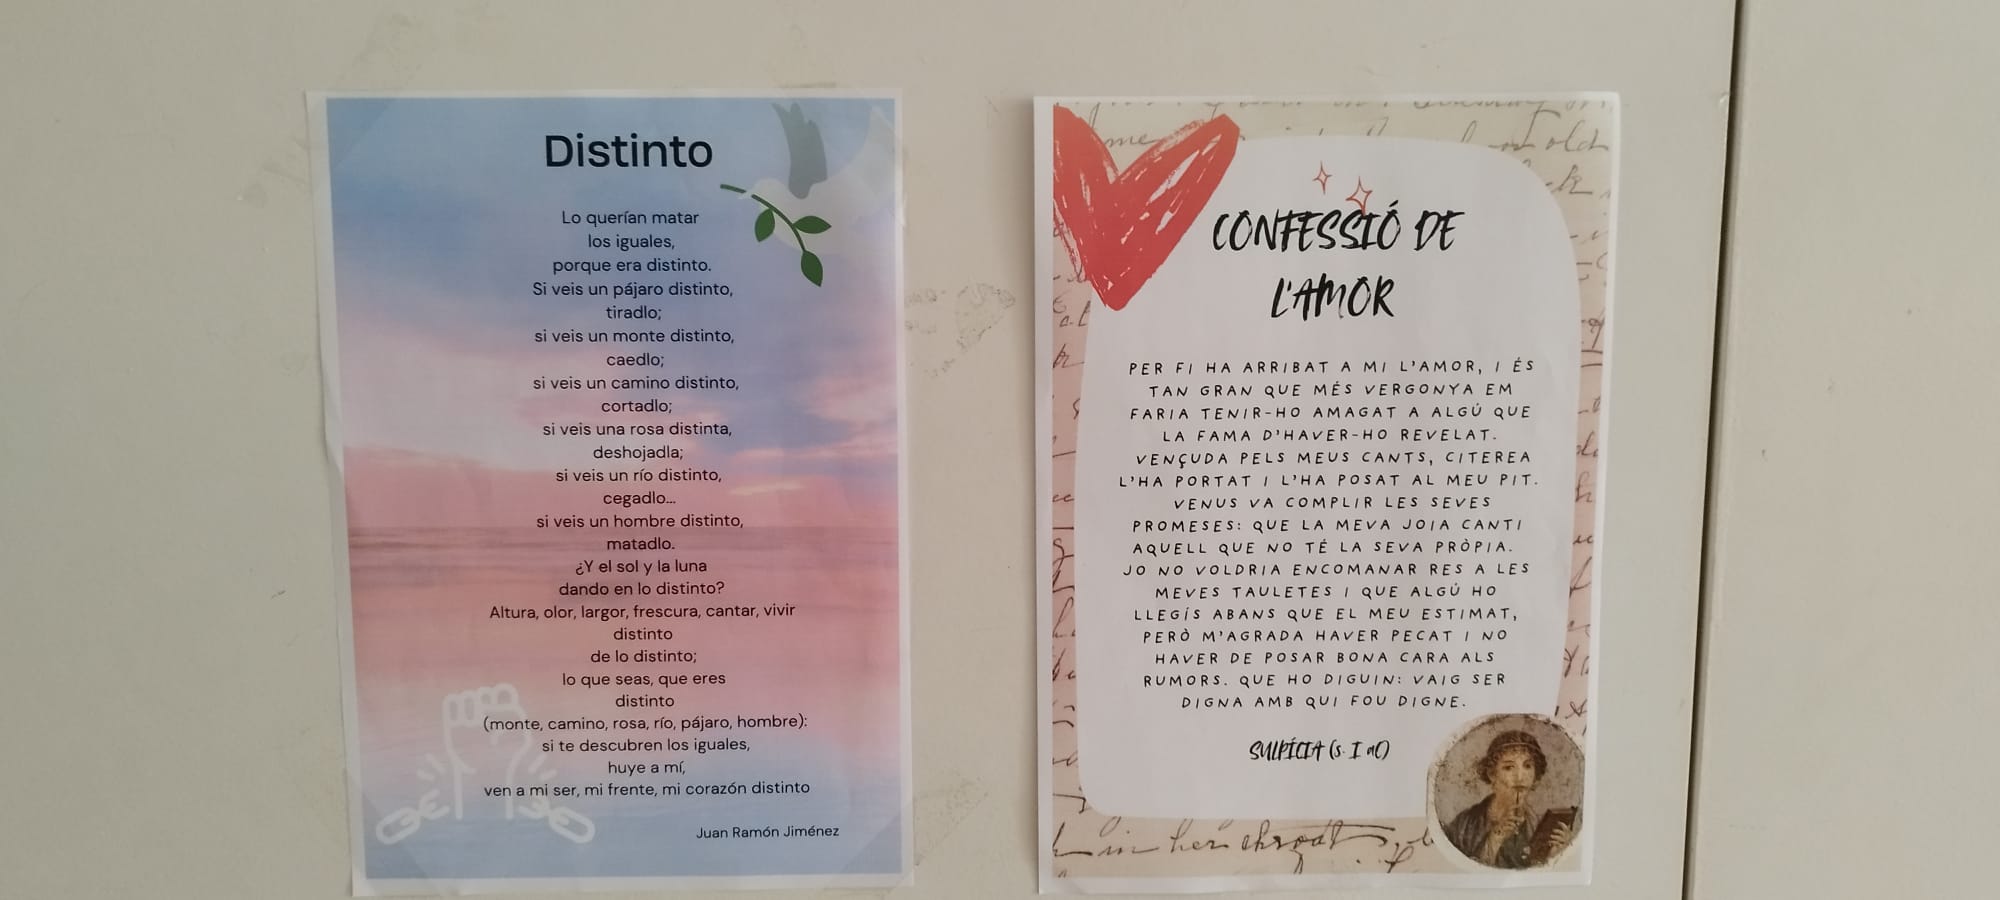 Distinto
Lo querían matar
los iguales,
porque era distinto.
Si veis un pájaro distinto,
tiradlo;
si veis un monte distinto,
caedlo;
si veis un camino distinto,
cortadlo;
si veis una rosa distinta,
deshojadla;
si veis un río distinto,
cegadlo...
si veis un hombre distinto,
matadlo.
¿Y el sol y la luna
dando en lo distinto?
Altura, olor, largor, frescura, cantar, vivir
distinto
de lo distinto;
lo que seas, que eres
distinto
(monte, camino, rosa, río, pájaro, hombre):
si te descubren los iguales,
huye a mí,
ven a mi ser, mi frente, mi corazón distinto
Juan Ramón Jiménez
CONFESSIÓ DE
L'AMOR
PER FI HA ARRIBAT A MI L'AMOR, I ÉS
TAN GRAN QUE MÉS VERGONYA EM
FARIA TENIR-HO AMAGAT A ALGÚ QUE
LA FAMA D'HAVER-HO REVELAT.
VENÇUDA PELS MEUS CANTS, CITEREA
L'HA PORTAT I L'HA POSAT AL MEU PIT.
VENUS VA COMPLIR LES SEVES
PROMESES: QUE LA MEVA JOIA CANTI
AQUELL QUE NO TÉ LA SEVA PRÒPIA.
JO NO VOLDRIA ENCOMANAR RES A LES
MEVES TAULETES I QUE ALGÚ HO
LLEGÍS ABANS QUE EL MEU ESTIMAT,
PERÒ M'AGRADA HAVER PECAT I NO
HAVER DE POSAR BONA CARA ALS
RUMORS. QUE HO DIGUIN: VAIG SER
DIGNA AMB QUI FOU DIGNE.
SULPÍCIA (s. I aC)
in her throat,